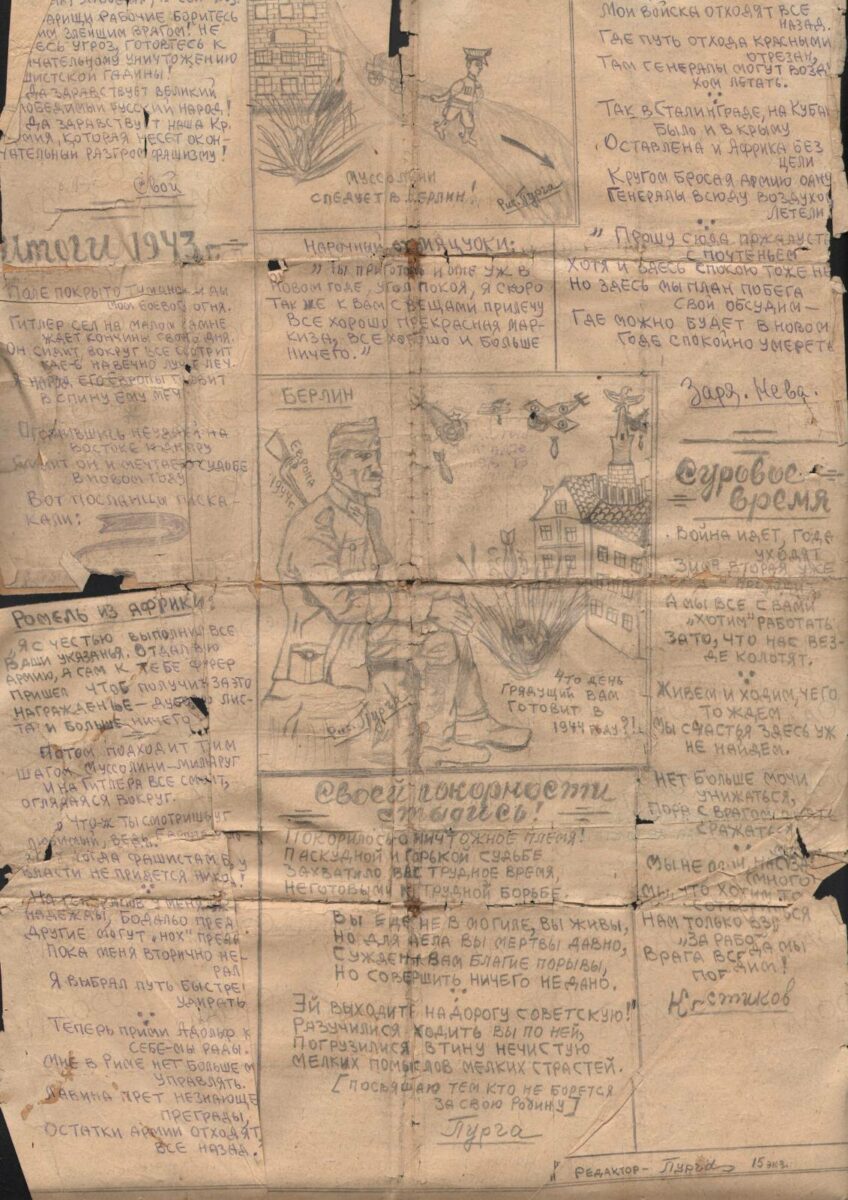 АРИЩИ РАБОЧИЕ БОРИТЕСЬ
ИМ ЗЛЕЙШИМ ВРАГОМ! НЕ
ЕСЬ УГРОЗ, ГОТОВТЕСЬ К
ЧАТЕЛЬНОМУ УНИЧТОЖЕНИЮ
ШИСТСКОЙ ГАДИНЫ!
ДА ЗДРАВСТВУЕТ ВЕЛИКИЙ
ПОБЕДИМЫЙ РУССКИЙ НАРОД!
ДА ЗДРАВСТВУЕТ НАША КР.
МИЯ, КОТОРАЯ НЕСЕТ ОКОН-
ЧАТЕЛЬНЫЙ РАЗГРОМ ФАШИЗМУ!
Свой
Итоги 1943 г.
ПОЛЕ ПОКРЫТО ТУМАНОМ И ДЫ
МОМ БОЕВОГО ОГНЯ.
ГИТЛЕР СЕЛ НА МАЛОМ КАМНЕ
ЖДЕТ КОНЧИНЫ СВОЕГО ДНЯ.
ОН СИДИТ ВОКРУГ ВСЕ СМОТРИТ
ГДЕ-Б НАВЕЧНО ЛУЧШЕ ЛЕЧ.
А НАРОД ЕГО ЕВРОПЫ ГОТОВИТ
В СПИНУ ЕМУ МЕЧ
НЕУДАЧИ НА
ВОСТОКЕ К ДНЕПРУ
ОН И МЕЧТАЕТ О СУДЬБЕ
В НОВОМ ГОДУ
ВОТ ПОСЛАНЦЫ ПРИСКА-
КАЛИ:
РОМЕЛЬ ИЗ АФРИКИ:
„Я С ЧЕСТЬЮ ВЫПОЛНИЛ ВСЕ
ВАШИ УКАЗАНЬЯ. ОТДАЛ ВСЮ
АРМИЮ, А САМ К ТЕБЕ ФЮРЕР
ПРИШЕЛ ЧТОБ ПОЛУЧИТЬ ЗА ЭТО
НАГРАЖДЕНЬЕ – ДУБОВО ЛИС-
ТА И БОЛЬШЕ НИЧЕГО
ПОТОМ ПОДХОДИТ ТИМ
ШАГОМ МУССОЛИНИ – МИЛ ДРУГ
И НА ГИТЛЕРА ВСЕ СМОТРИТ,
ОГЛЯДАЯСЯ ВОКРУГ.
ЧТО-Ж ТЫ СМОТРИШЬ ДРУГ
ЛЮБИМЫЙ, ВЕДЬ
ФАШИСТАМ Б У
ВЛАСТИ НЕ ПРИДЕТСЯ НИКОГ
У МЕНЯ
НАДЕЖДЫ, БОДАЛЬО ПРЕДА
ДРУГИЕ МОГУТ „НОХ" ПРЕДАТ
ПОКА МЕНЯ ВТОРИЧНО НЕ-
Я ВЫБРАЛ ПУТЬ БЫСТРЕЕ
УДИРАТЬ
ТЕПЕРЬ ПРИМИ АДОЛЬФ К
СЕБЕ – МЫ РАДЫ.
МНЕ В РИМЕ НЕТ БОЛЬШЕ М
УПРАВЛЯТЬ.
ЛАВИНА ПРЕТ НЕЗНАЮЩЕ
ПРЕГРАДЫ,
ОСТАТКИ АРМИИ ОТХОДЯТ
ВСЕ НАЗАД.
МУССОЛИНИ
СЛЕДУЕТ В БЕРЛИН!
Рис. Пурга
НАРОЧНЫЙ ОТ МАЦУОКИ:
„ТЫ ПРИГОТОВЬ И МНЕ УЖ В
НОВОМ ГОДЕ, УГОЛ ПОКОЯ, Я СКОРО
ТАК ЖЕ К ВАМ С ВЕЩАМИ ПРИЛЕЧУ
ВСЕ ХОРОШО ПРЕКРАСНАЯ МАР-
КИЗА, ВСЕ ХОРОШО И БОЛЬШЕ
НИЧЕГО."
БЕРЛИН
ЕВРОПА
1944 г
ЧТО ДЕНЬ
ГРЯДУЩИЙ ВАМ
ГОТОВИТ В
1944 ГОДУ?!
Рис. Пурга
Своей покорности
стыдись!
ПОКОРИЛОСЬ О НИЧТОЖНОЕ ПЛЕМЯ!
ПАСКУДНОЙ И ГОРЬКОЙ СУДЬБЕ
ЗАХВАТИЛО ВАС ТРУДНОЕ ВРЕМЯ,
НЕГОТОВЫМИ К ТРУДНОЙ БОРЬБЕ.
ВЫ ЕЩЕ НЕ В МОГИЛЕ, ВЫ ЖИВЫ,
НО ДЛЯ ДЕЛА ВЫ МЕРТВЫ ДАВНО,
СУЖДЕНЫ ВАМ БЛАГИЕ ПОРЫВЫ,
НО СОВЕРШИТЬ НИЧЕГО НЕ ДАНО.
ЭЙ ВЫХОДИТЕ НА ДОРОГУ СОВЕТСКУЮ!
РАЗУЧИЛИСЯ ХОДИТЬ ВЫ ПО НЕЙ,
ПОГРУЗИЛИСЯ В ТИНУ НЕЧИСТУЮ
МЕЛКИХ ПОМЫСЛОВ МЕЛКИХ СТРАСТЕЙ.
[ПОСВЯЩАЮ ТЕМ КТО НЕ БОРЕТСЯ
ЗА СВОЮ РОДИНУ]
Пурга
МОИ ВОЙСКА ОТХОДЯТ ВСЕ
НАЗАД.
ГДЕ ПУТЬ ОТХОДА КРАСНЫМИ
ОТРЕЗАН,
ТАМ ГЕНЕРАЛЫ МОГУТ ВОЗДУ
ХОМ ЛЕТАТЬ.
ТАК В СТАЛИНГРАДЕ, НА КУБАН
БЫЛО И В КРЫМУ
ОСТАВЛЕНА И АФРИКА БЕЗ
ЦЕЛИ
КРУГОМ БРОСАЯ АРМИЮ ОДНУ
ГЕНЕРАЛЫ ВСЮДУ ВОЗДУХОМ
ЛЕТЕЛИ
„ПРОШУ СЮДА ПОЖАЛУСТА
С ПОЧТЕНЬЕМ
ХОТЯ И ЗДЕСЬ СПОКОЮ ТОЖЕ НЕ
НО ЗДЕСЬ МЫ ПЛАН ПОБЕГА
СВОЙ ОБСУДИМ –
ГДЕ МОЖНО БУДЕТ В НОВОМ
ГОДЕ СПОКОЙНО УМЕРЕТЬ
Заря. Нева.
Суровое
время
ВОЙНА ИДЕТ, ГОДА
УХОДЯТ
ЗИМА ВТОРАЯ УЖЕ
А МЫ ВСЕ С ВАМИ
„ХОТИМ" РАБОТАТЬ
ЗАТО, ЧТО НАС ВЕЗ-
ДЕ КОЛОТЯТ.
ЖИВЕМ И ХОДИМ, ЧЕГО
ТО ЖДЕМ
МЫ СЧАСТЬЯ ЗДЕСЬ УЖ
НЕ НАЙДЕМ.
НЕТ БОЛЬШЕ МОЧИ
УНИЖАТЬСЯ,
ПОРА С ВРАГОМ
СРАЖАТЬСЯ
МЫ НЕ ОДНИ НАС
(МНОГО)
МЫ, ЧТО ХОТИМ ТО
НАМ ТОЛЬКО ВЗЯТЬСЯ
„ЗА РАБОТУ"
ВРАГА ВСЕГДА МЫ
ПОБЕДИМ!
РЕДАКТОР – Пурга 15 экз.